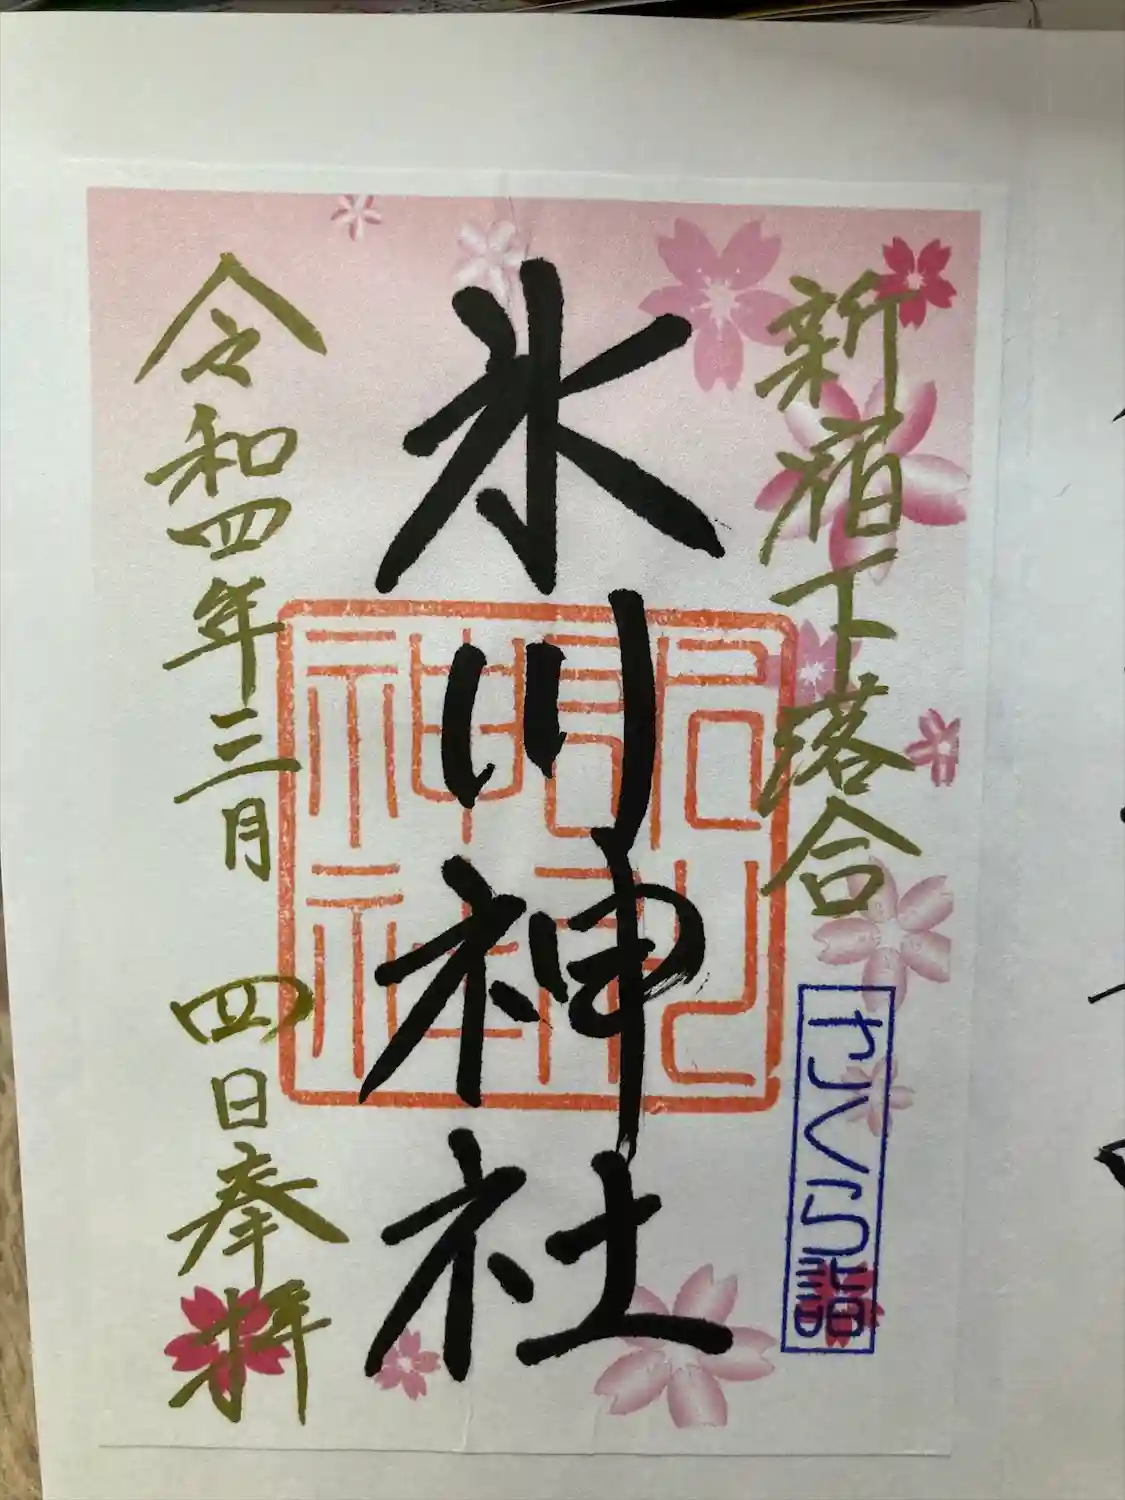 新宿下落合
かくら詣
氷川神社
令和四年三月 四日奉拝